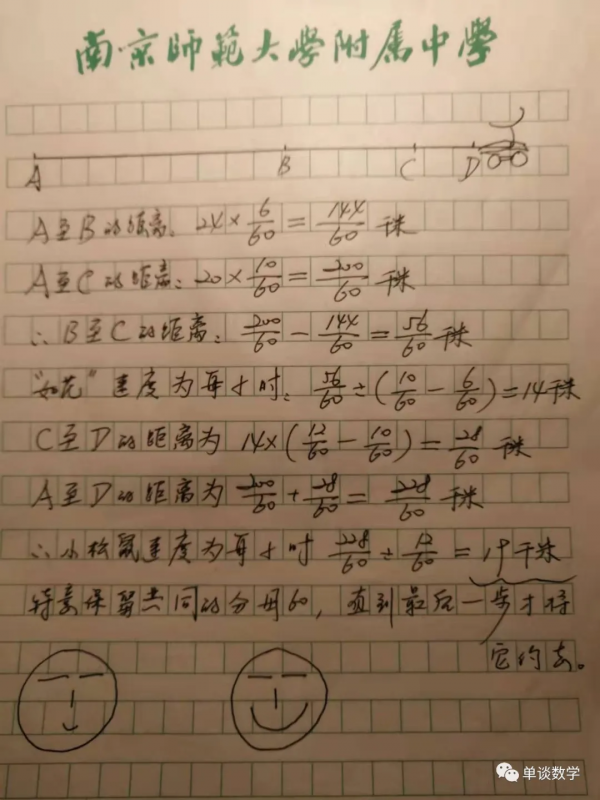 南京師範大學附属中學
A B C D
A至B的距离: 24×6/60=144/60 千米
A至C的距离: 20×10/60=200/60 千米
∴B至C的距离: 200/60-144/60=56/60 千米
"如花"速度为每小时: 56/60÷(10/60-6/60)=14千米
C至D的距离为 14×(12/60-10/60)=28/60 千米
A至D的距离为 200/60+28/60=228/60 千米
∴小松鼠速度为每小时 228/60÷12/60=19千米
特意保留共同的分母60, 直到最后一步才将
它约去。
单谈数学